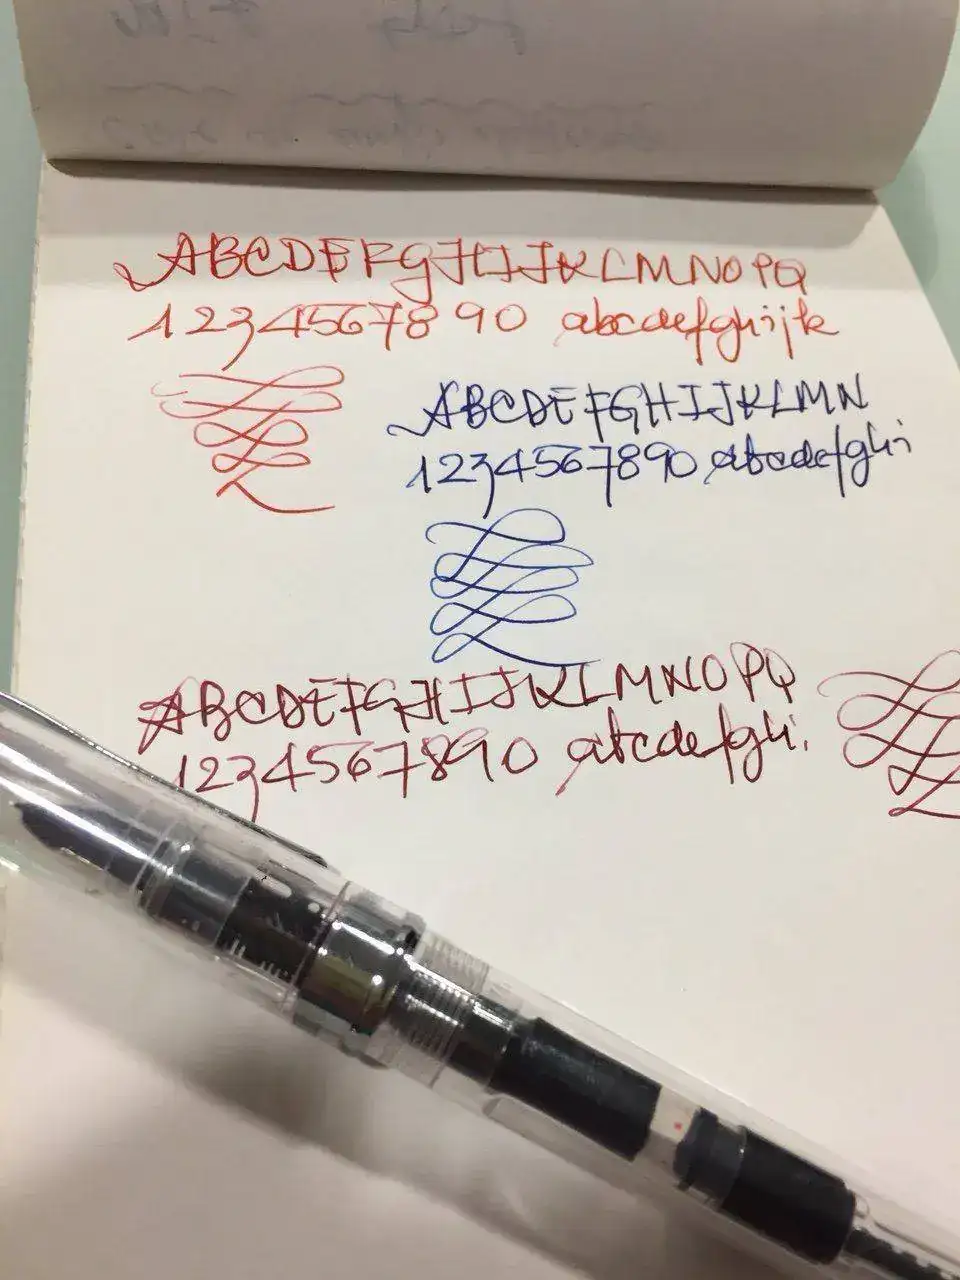 ABCDEFGHIJKLMNOPQ
1234567890 abcdefghijk
ABCDEFGHIJKLMN
1234567890 abcdefghi
ABCDEFGHIJKLMNOPQ
1234567890 abcdefghi